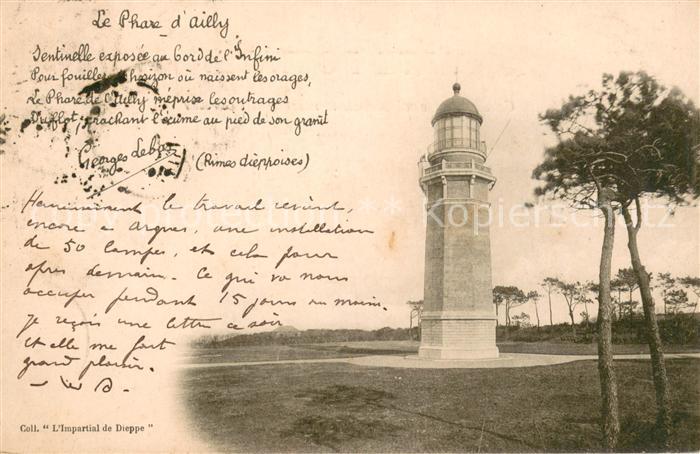 Le Phare d'Ailly
Sentinelle exposée au bord de l'Infini
Pour fouiller l'horizon où naissent les orages,
Le Phare de l'Ailly méprise les outrages
Du flot, crachant l'écume au pied de son granit
Georges (Rimes dieppoises)
le travail revient,
encore à Arques, une installation
de 50 lampes, et cela pour
après demain. Ce qui va nous
occuper pendant 15 jours au moins.
Je reçois une lettre ce soir
et elle me fait
grand plaisir.
Coll. "L'Impartial de Dieppe"
watermark protection ekspreszita